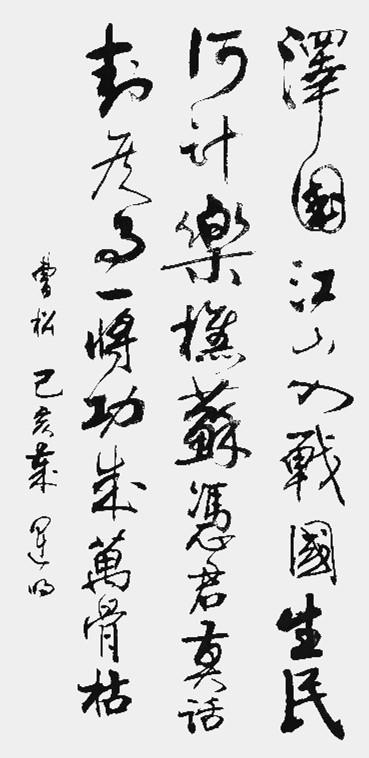 澤國江山入戰圖生民
何計樂樵蘇憑君莫話
封侯事一將功成萬骨枯
曹松 己亥歲 運明